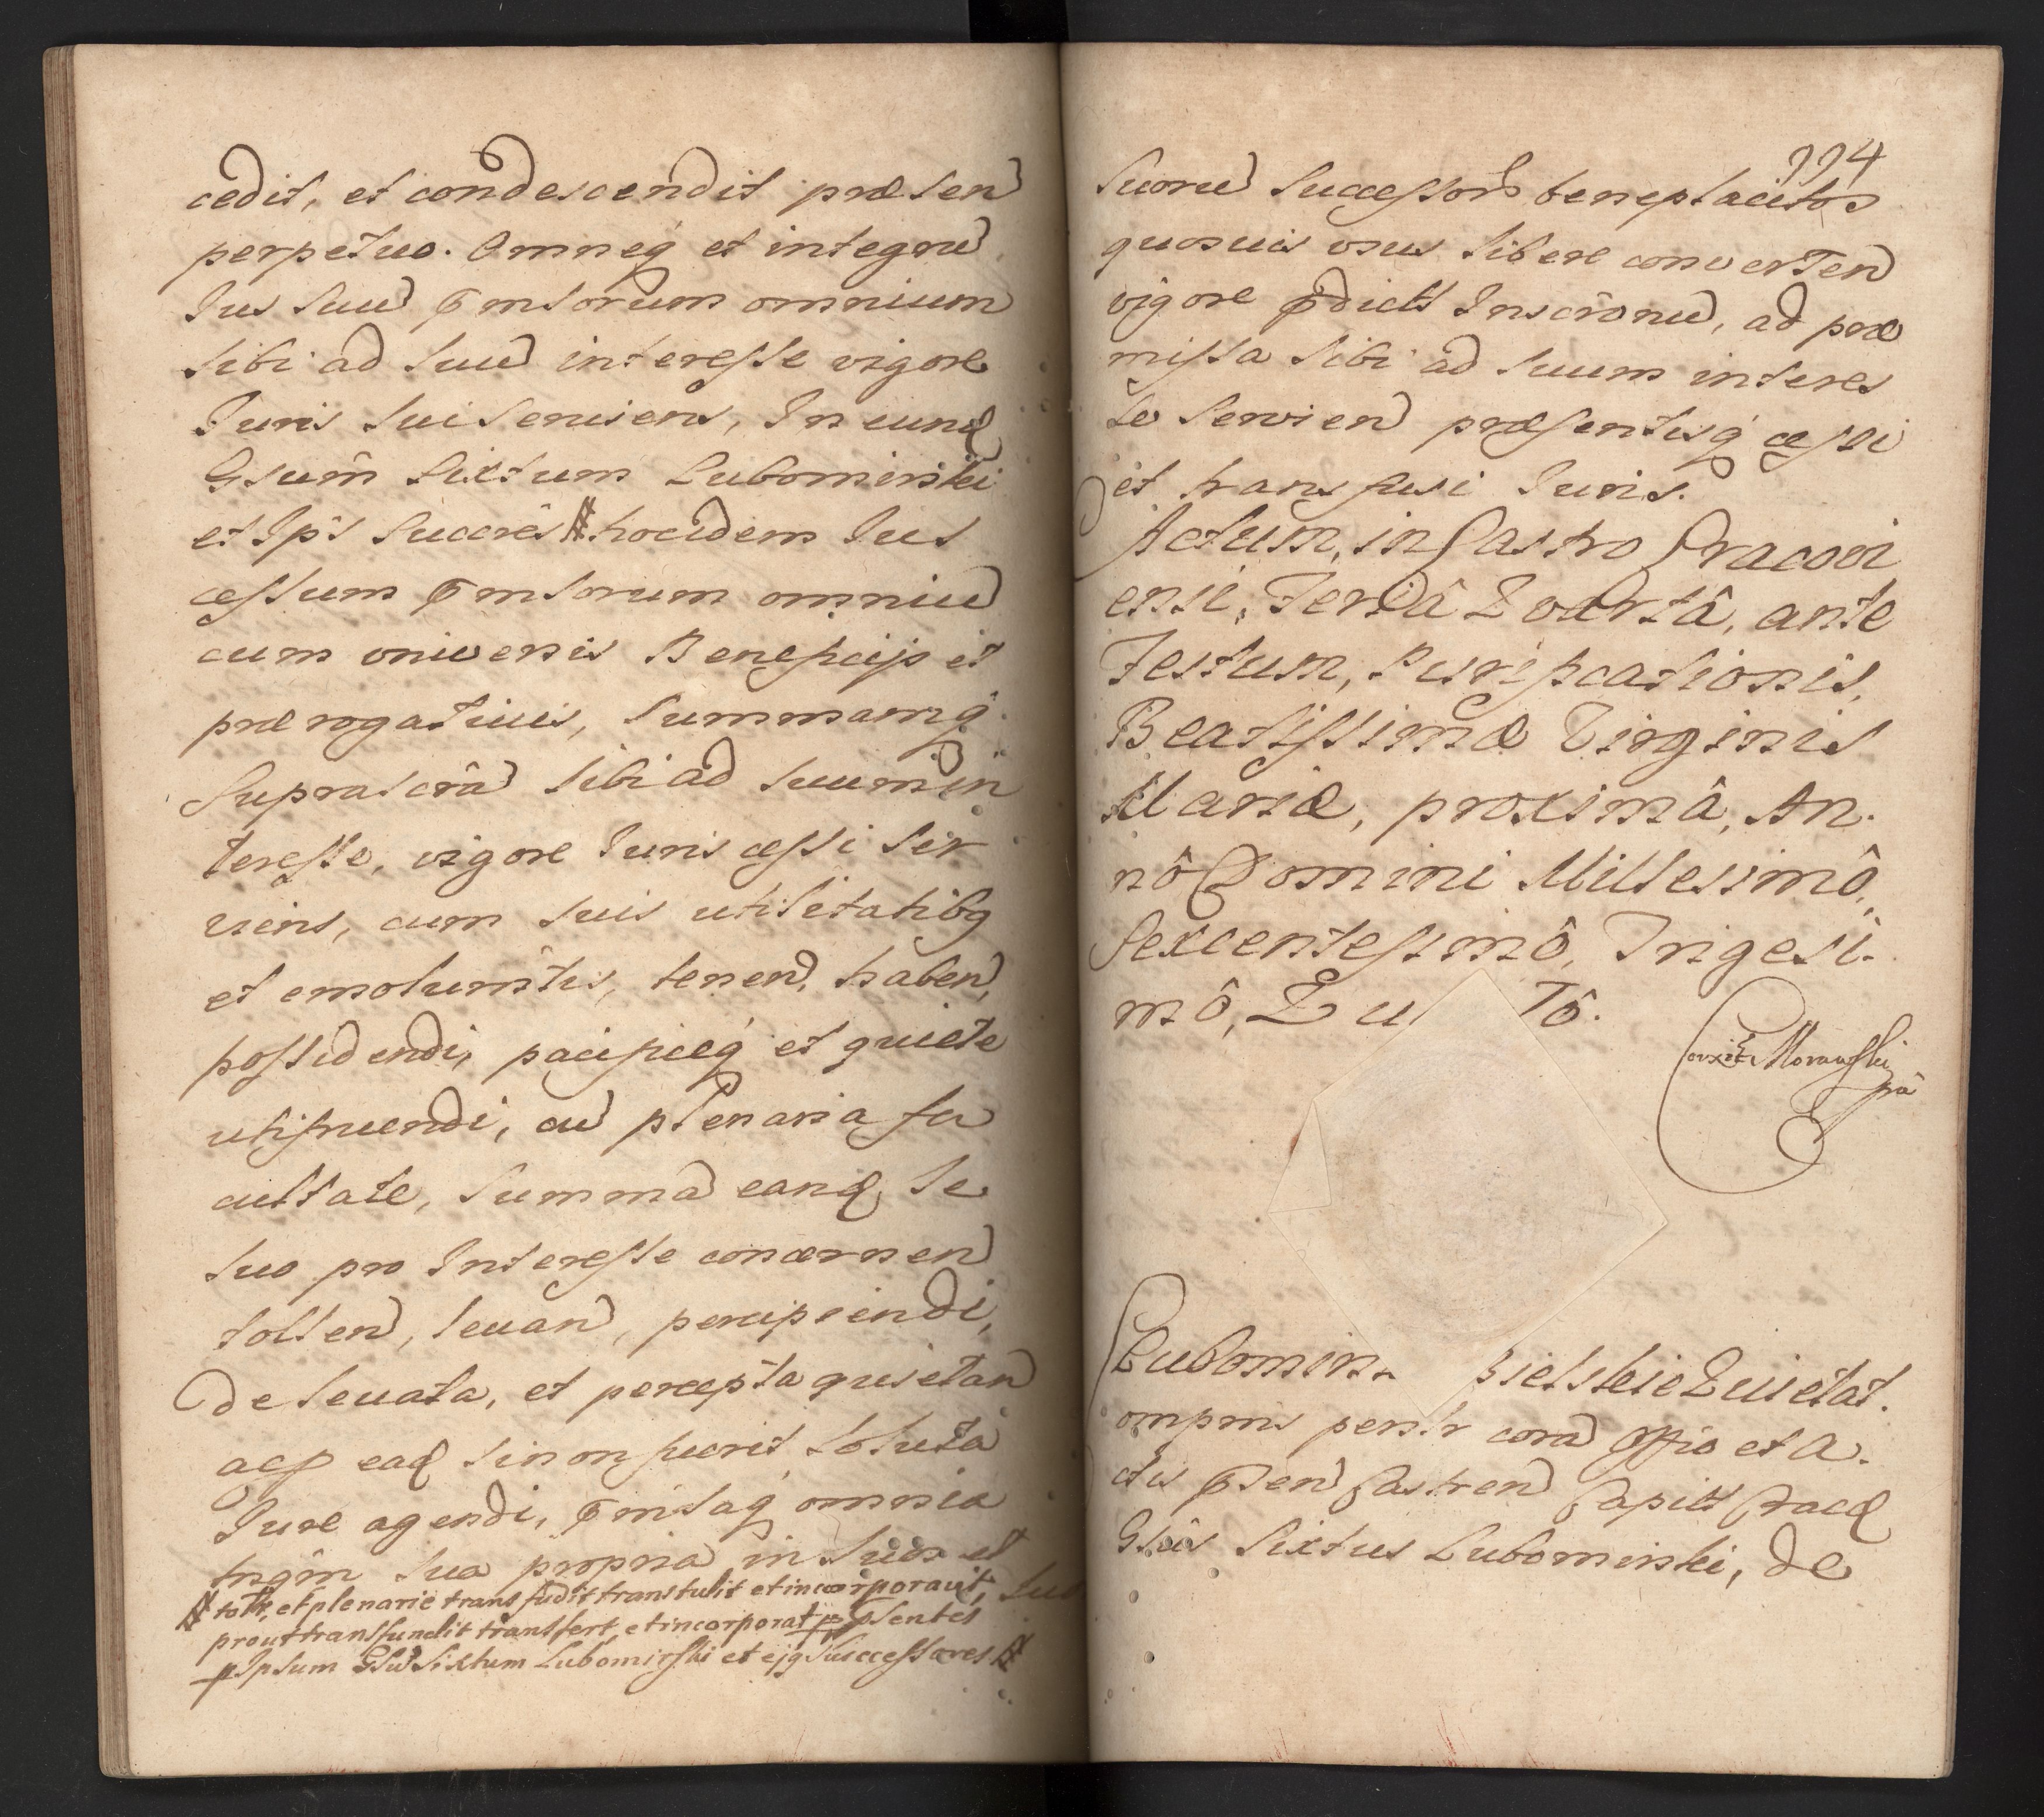 cedit, et condescendit præsen
perpetuo. Omneq́ et integrū
Ius suū p̄mssorum omnium
sibi ad suū interesse vigore
Iuris sui seruiens, In eund
Gsum̄ Sixtum Lubomirski
et Ips̄ Succrēs # hocidem Ius
cessum p̄mssorum omniū
cum vniuersis Beneficijs et
prærogatiuis, summamq́
suprascrā sibi ad suum in
teresse, vigore Iuris cessi ser
viens, cum suis utilitatibq
et emolumn̄tis, tenen, haben,
possidendi, pacificeq́ et quiete
utifruendi, cū plenaria fa
cultate, summā eand, se
suo pro Interesse concernen
tollen, leuan, percipiendi,
de leuata, et percepta quietan
acp eād si non fuerit soluta
Iure agendi, p̄mssaq́ omnia
in suos et
# totr, et plenarie transfudit transtulit et incorporauit,
prout transfundit transfert, et incorporat p p̄sentes
Ipsum Gsū Sixtum Lubomirski et ejq Successores #
suo
114
suorū successorū beneplacitos
quosuis vsus libere conuerten
vigore p̄dictt Inscrōnū, ad præ
missa sibi ad suum interes
se servien præsentisq́ cessi
et transfusi Iuris.
Actum, in Castro Cracovi
ensi, Feriâ Qvartâ, ante
Festum, Purificationis,
Beatissimæ Virginis
Mariæ, proximâ, An.
nô Domini Millesimô,
Sexcentesimô, Trigesi.
mô, Qu Tô.
Corxit Morawski
prā
Lubomirs Bielskie Quietat.
ompnis persr corā Offio et A.
ctis p̄sen Castren Capitt Cracd
Gsūs Sixtus Lubomirski, de